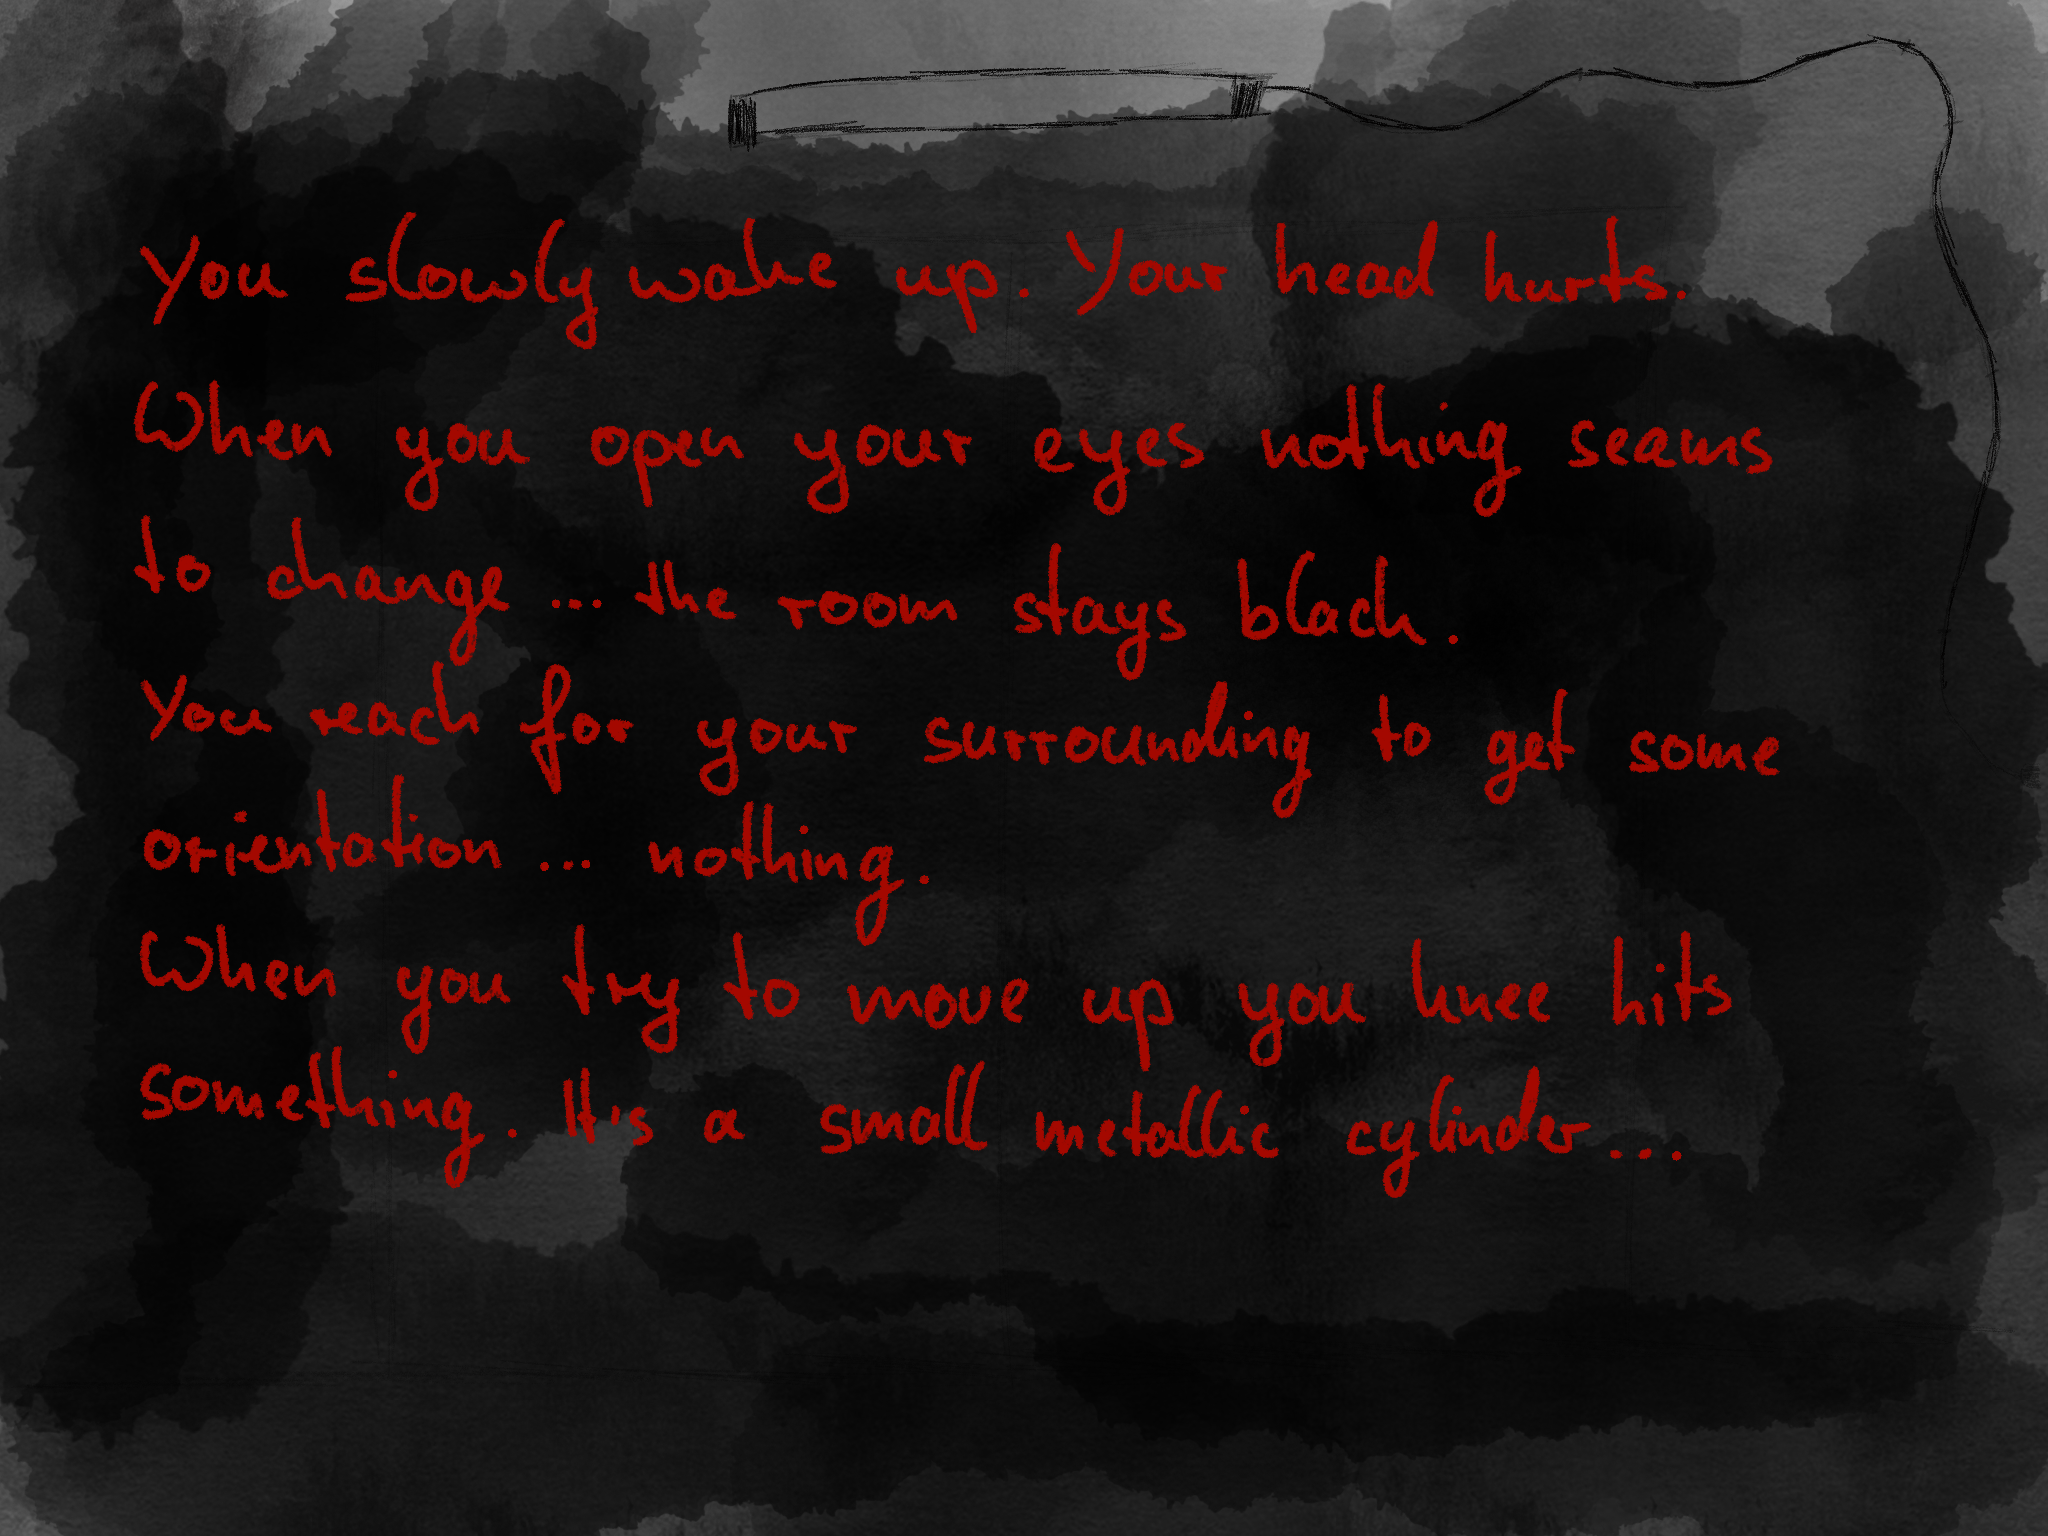 You slowly wake up. Your head hurts.
When you open your eyes nothing seams
to change ... the room stays black.
You reach for your surrounding to get some
orientation ... nothing.
When you try to move up you knee hits
something. It's a small metallic cylinder....